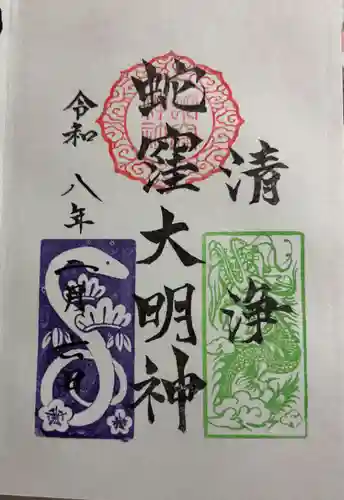 清浄
蛇窪大明神
令和八年
二月七日